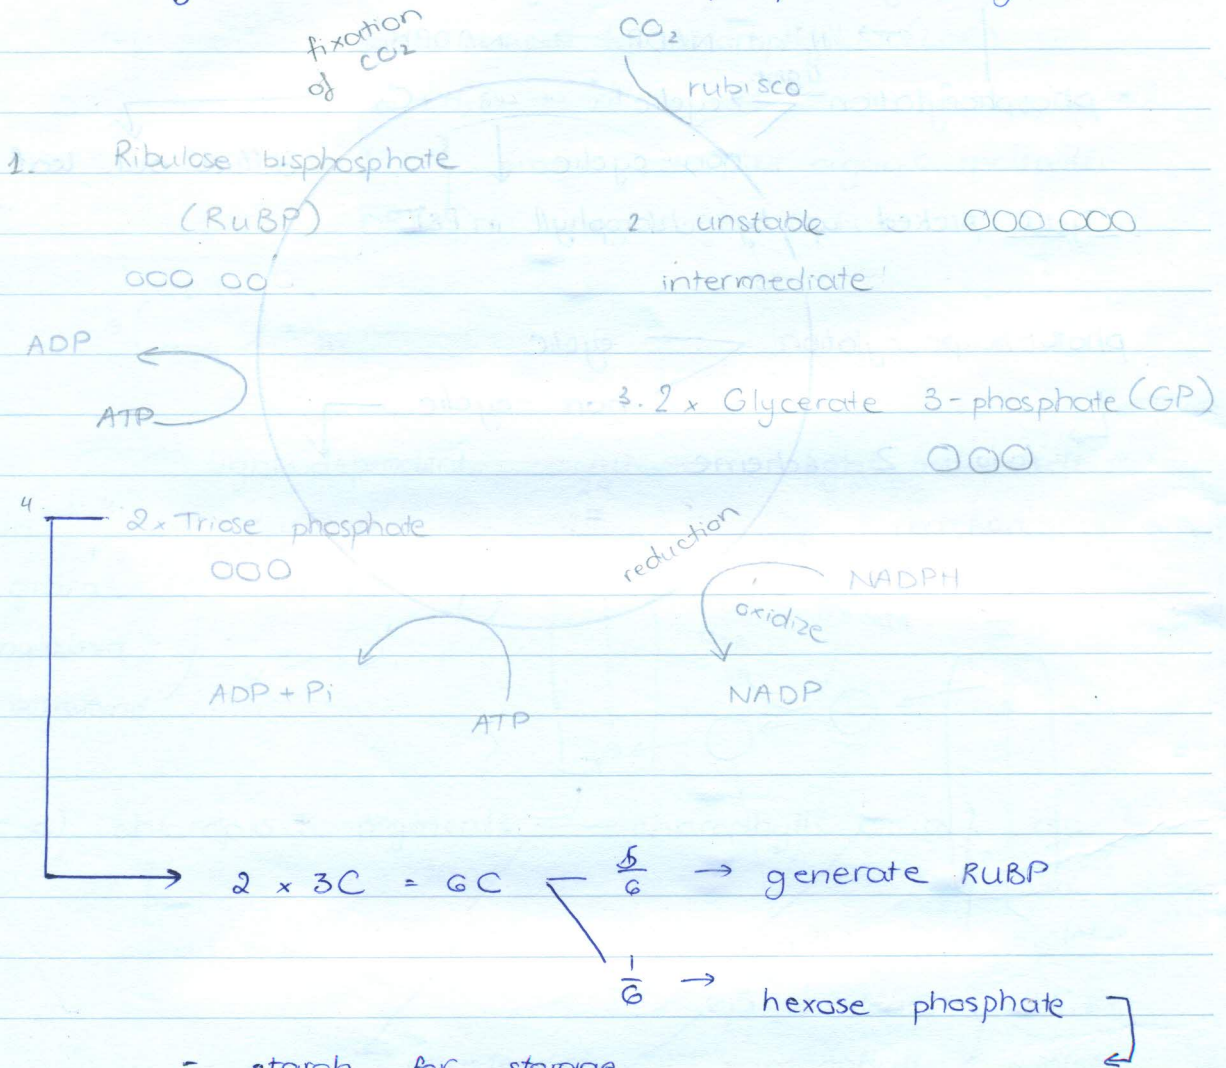 fixation
of CO2
CO2
rubisco
1. Ribulose bisphosphate
(RuBP)
2 unstable
intermediate
ADP
ATP
3. 2 x Glycerate 3-phosphate (GP)
4 2x Triose phosphate
reduction
NADPH
oxidize
NADP
ADP + Pi
ATP
2 x 3C = 6C — 5/6 → generate RUBP
1/6 → hexose phosphate
= starch for storage